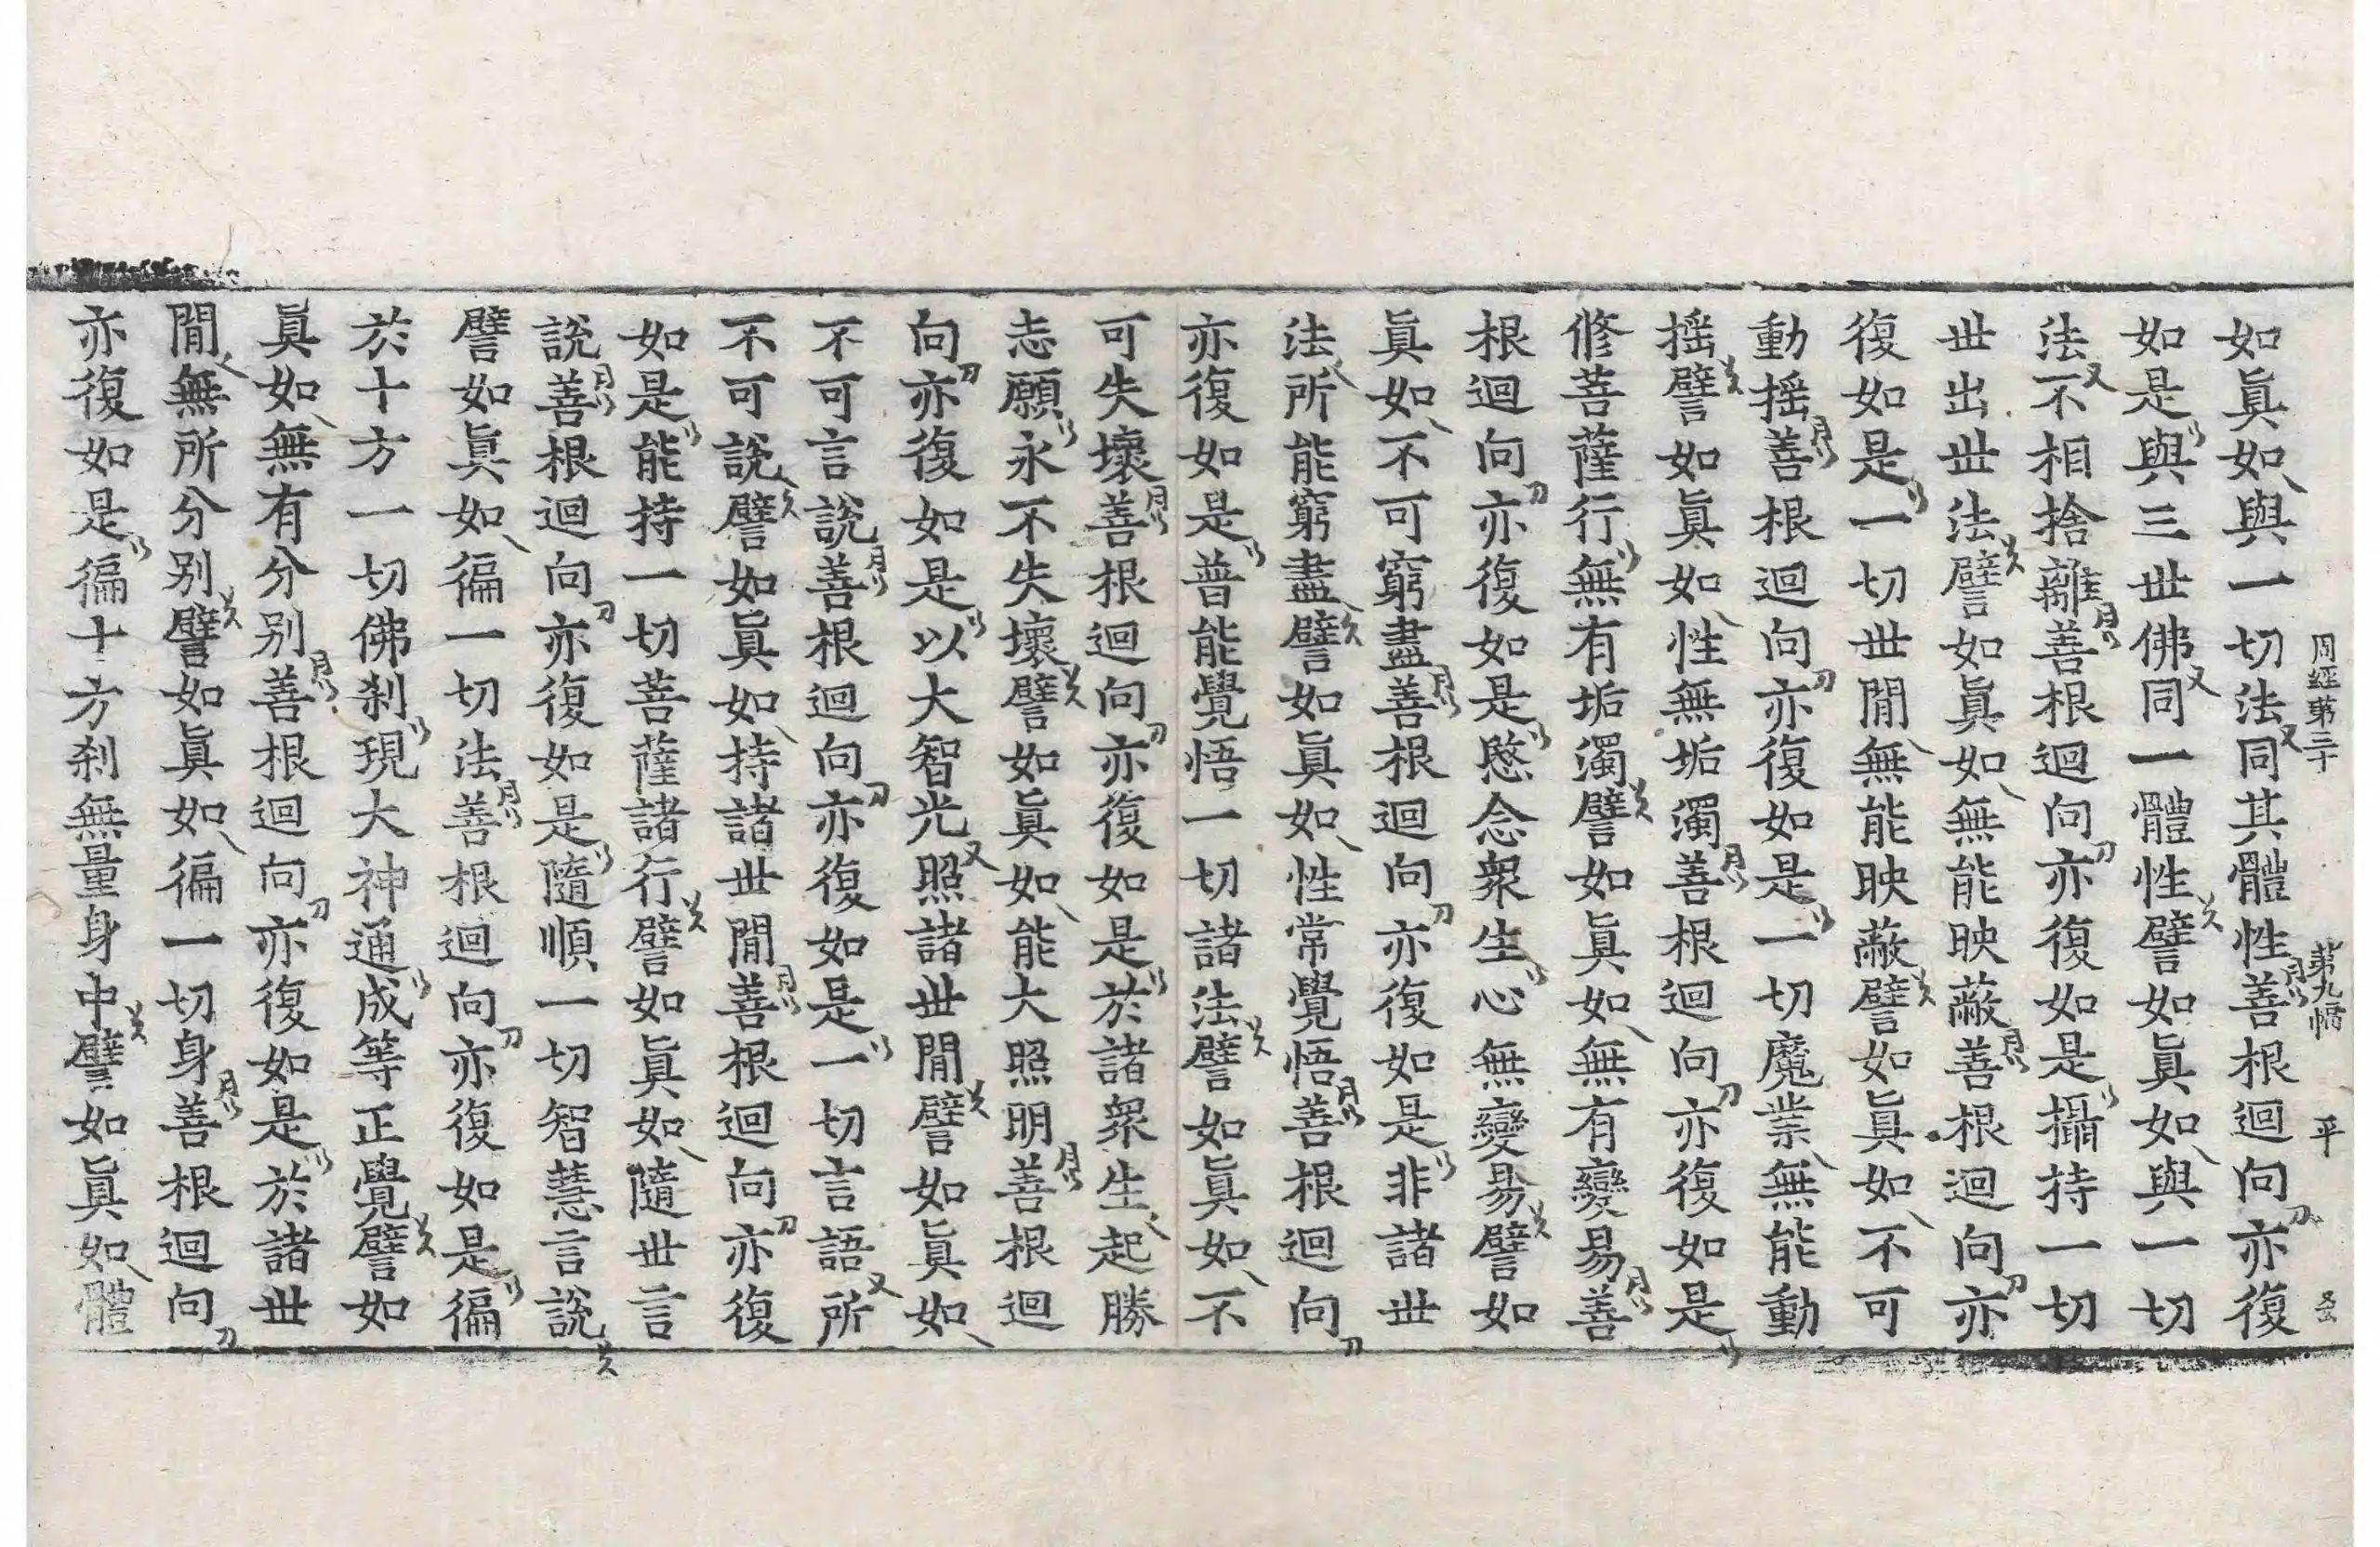 周經第三十 第九幅 平
如眞如與一切法同其體性善根迴向亦復
如是與三世佛同一體性譬如眞如與一切
法不相捨離善根迴向亦復如是攝持一切
世出世法譬如眞如無能映蔽善根迴向亦
復如是一切世閒無能映蔽譬如眞如不可
動搖善根迴向亦復如是一切魔業無能動
搖譬如眞如性無垢濁善根迴向亦復如是
修菩薩行無有垢濁譬如眞如無有變易善
根迴向亦復如是愍念衆生心無變易譬如
眞如不可窮盡善根迴向亦復如是非諸世
法所能窮盡譬如眞如性常覺悟善根迴向
亦復如是普能覺悟一切諸法譬如眞如不
可失壞善根迴向亦復如是於諸衆生起勝
志願永不失壞譬如眞如能大照明善根迴
向亦復如是以大智光照諸世閒譬如眞如
不可言說善根迴向亦復如是一切言語所
不可說譬如眞如持諸世閒善根迴向亦復
如是能持一切菩薩諸行譬如眞如隨世言
說善根迴向亦復如是隨順一切智慧言說
譬如眞如徧一切法善根迴向亦復如是徧
於十方一切佛刹現大神通成等正覺譬如
眞如無有分别善根迴向亦復如是於諸世
閒無所分别譬如眞如徧一切身善根迴向
亦復如是徧十方刹無量身中譬如眞如體